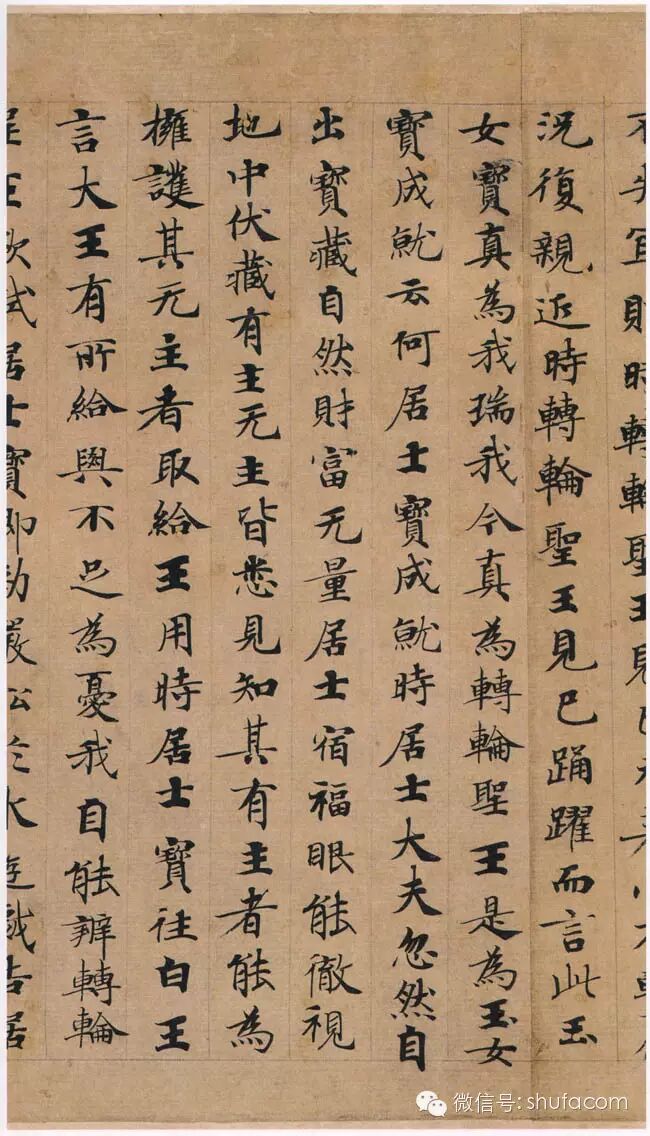 不失宜則時轉輪聖王見已
況復親近時轉輪聖王見已踊躍而言此玉
女寶真為我瑞我今真為轉輪聖王是為玉女
寶成就云何居士寶成就時居士大夫忽然自
出寶藏自然財富无量居士宿福眼能徹視
地中伏藏有主无主皆悉見知其有主者能為
擁護其无主者取給王用時居士寶往白王
言大王有所給與不足為憂我自能辦轉輪
聖王欲試居士寶即勑嚴船於水遊戲告居
微信号: shufacom